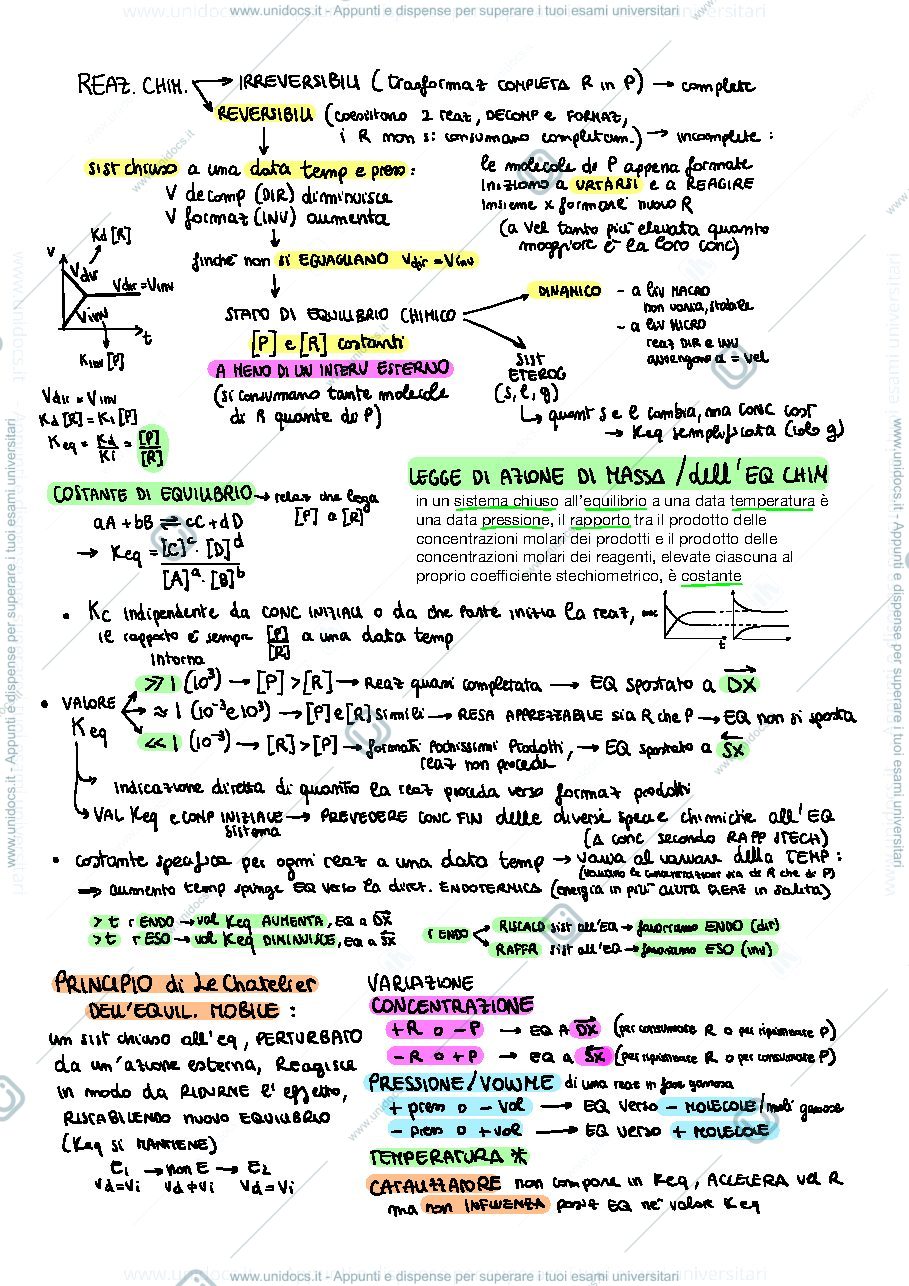 www.unidocs.it - Appunti e dispense per superare i tuoi esami universitari
REAZ. CHIM. → IRREVERSIBILI (trasformaz COMPLETA R in P) → complete
REVERSIBILI (coesistono 2 reaz, DECOMP e FORMAZ,
i R non si consumano completam.) → incomplete:
sist chiuso a una data temp e press:
V decomp (DIR) diminuisce
V formaz (INV) aumenta
le molecole di P appena formate
iniziano a URTARSI e a REAGIRE
insieme x formare nuovo R
(a vel tanto più elevata quanto
maggiore è la loro conc)
finché non si EGUAGLIANO Vdir = Vinv
V Kd [R]
Vdir
Vdir = Vinv
Vinv
t
Kinv [P]
STATO DI EQUILIBRIO CHIMICO
[P] e [R] costanti
A MENO DI UN INTERV ESTERNO
(si consumano tante molecole
di R quante di P)
DINAMICO - a liv MACRO
non varia, stabile
- a liv MICRO
reaz DIR e INV
avvengono a = vel
SIST
ETEROG
(s, l, g)
↳ quant s e l cambia, ma CONC cost
→ Keq semplificata (solo g)
Vdir = Vinv
Kd [R] = Ki [P]
Keq = Kd/Ki = [P]/[R]
COSTANTE DI EQUILIBRIO → relaz che lega
[P] a [R]
aA + bB ⇌ cC + dD
→ Keq = [C]^c · [D]^d / [A]^a · [B]^b
LEGGE DI AZIONE DI MASSA / dell'EQ CHIM
in un sistema chiuso all'equilibrio a una data temperatura è
una data pressione, il rapporto tra il prodotto delle
concentrazioni molari dei prodotti e il prodotto delle
concentrazioni molari dei reagenti, elevate ciascuna al
proprio coefficiente stechiometrico, è costante
• Kc indipendente da CONC INIZIALI o da che parte inizia la reaz,
il rapporto è sempre [P]/[R] a una data temp
t
intorno
• VALORE Keq
≫ 1 (10³) → [P] > [R] → Reaz quasi completata → EQ spostato a DX
≈ 1 (10⁻³ e 10³) → [P] e [R] simili → RESA APPREZZABILE sia R che P → EQ non si sposta
≪ 1 (10⁻³) → [R] > [P] → formati pochissimi prodotti, → EQ spostato a SX
reaz non procede
↳ indicazione diretta di quanto la reaz proceda verso formaz prodotti
↳ VAL Keq e COMP INIZIALE → PREVEDERE CONC FIN delle diverse specie chimiche all'EQ
sistema
(Δ conc secondo RAPP STECH)
• costante specifica per ogni reaz a una data temp → varia al variare della TEMP:
(variano le concentrazioni sia di R che di P)
⇒ aumento temp spinge EQ verso la direz. ENDOTERMICA (energia in più aiuta REAZ in salita)
> t r ENDO → val Keq AUMENTA, EQ a DX
> t r ESO → val Keq DIMINUISCE, EQ a SX
r ENDO
RISCALD sist all'EQ → favoriamo ENDO (dir)
RAFFR sist all'EQ → favoriamo ESO (inv)
PRINCIPIO di Le Chatelier
DELL'EQUIL. MOBILE:
un sist chiuso all'eq, PERTURBATO
da un'azione esterna, Reagisce
in modo da RIDURNE l'effetto,
RISTABILENDO nuovo EQUILIBRIO
(Keq si MANTIENE)
E1 → non E → E2
Vd=Vi Vd≠Vi Vd=Vi
VARIAZIONE
CONCENTRAZIONE
+R o -P → EQ A DX (per consumare R o per ripristinare P)
-R o +P → EQ a SX (per ripristinare R o per consumare P)
PRESSIONE/VOLUME di una reaz in fase gassosa
+ press o - Vol → EQ verso - MOLECOLE/moli gassose
- press o + vol → EQ verso + MOLECOLE
TEMPERATURA *
CATALIZZATORE non compare in Keq, ACCELERA vel R
ma non INFLUENZA posiz EQ né valore Keq
www.unidocs.it - Appunti e dispense per superare i tuoi esami universitari